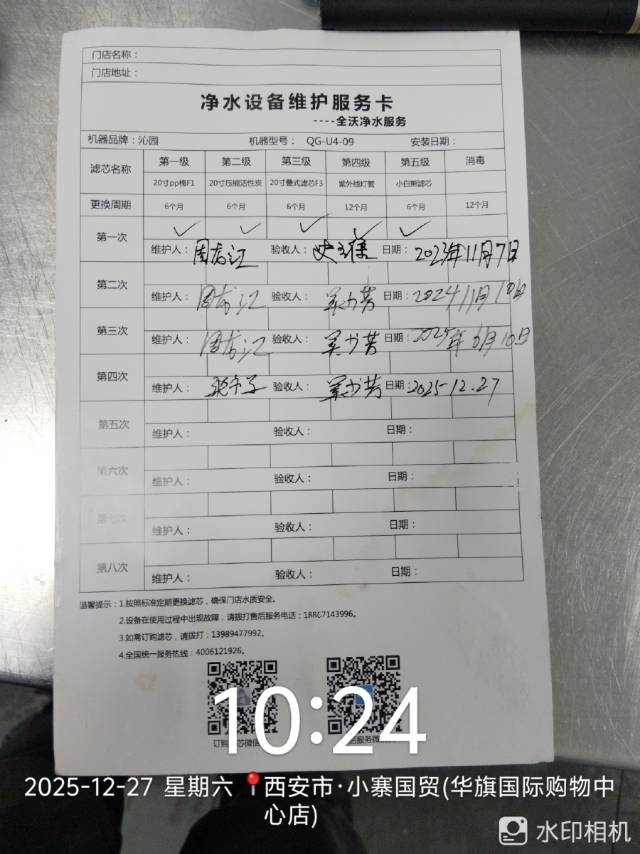 门店名称：
门店地址：
净水设备维护服务卡
----全沃净水服务
机器品牌：沁园 机器型号： QG-U4-09 安装日期：
滤芯名称 第一级 第二级 第三级 第四级 第五级 消毒
20寸pp棉F1 20寸压缩活性炭 20寸叠式滤芯F3 紫外线灯管 小白熊滤芯
更换周期 6个月 6个月 6个月 12个月 6个月 12个月
第一次 ✓ ✓ ✓ ✓ ✓
维护人： 验收人： 日期： 2023年11月7日
第二次
维护人： 验收人： 日期： 2024 11月10日
第三次
维护人： 验收人： 日期： 2025年6月10日
第四次
维护人： 验收人： 日期：2025-12.27
第五次
维护人： 验收人： 日期：
第六次
维护人： 验收人： 日期：
第七次
维护人： 验收人： 日期：
第八次
维护人： 验收人： 日期：
温馨提示：1.按照标准定期更换滤芯，确保门店水质安全。
2.设备在使用过程中出现故障，请拨打售后服务电话：18867143996。
3.如需订购滤芯，请拨打：13989477992。
4.全国统一服务热线：4006121926。
10:24
2025-12-27 星期六 西安市·小寨国贸(华旗国际购物中
心店)
水印相机